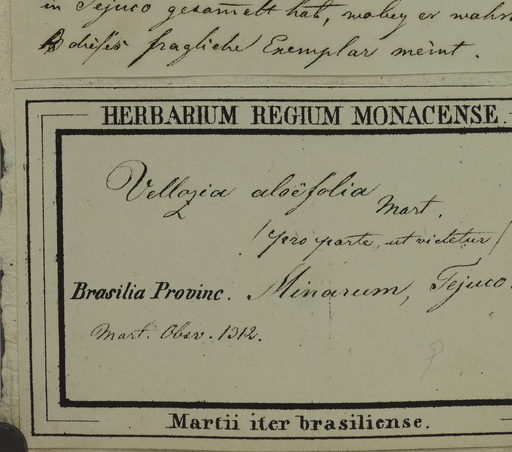 in Tejuco gesam̄elt hat, wobey er wahr
dieses fragliche Exemplar meint.
HERBARIUM REGIUM MONACENSE.
Vellozia aloëfolia Mart.
(pro parte, ut videtur)
Brasilia Provinc. Minarum, Tejuco.
Mart. Obsv. 1312.
Martii iter brasiliense.